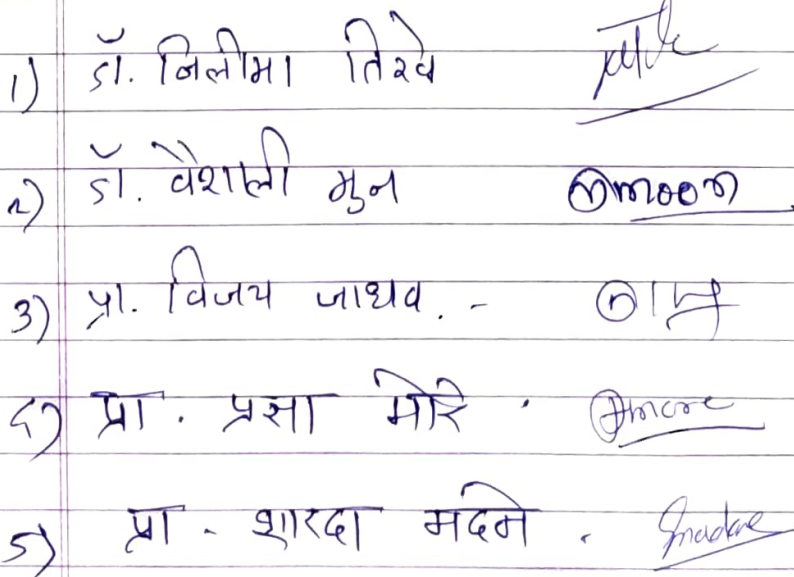 1) डॉ. निलीमा तिरवे
2) डॉ. वैशाली मुन moon
3) प्रा. विजय जाधव. -
४) प्रा. प्रज्ञा मोरे . more
5) प्रा - शारदा मदने . madane